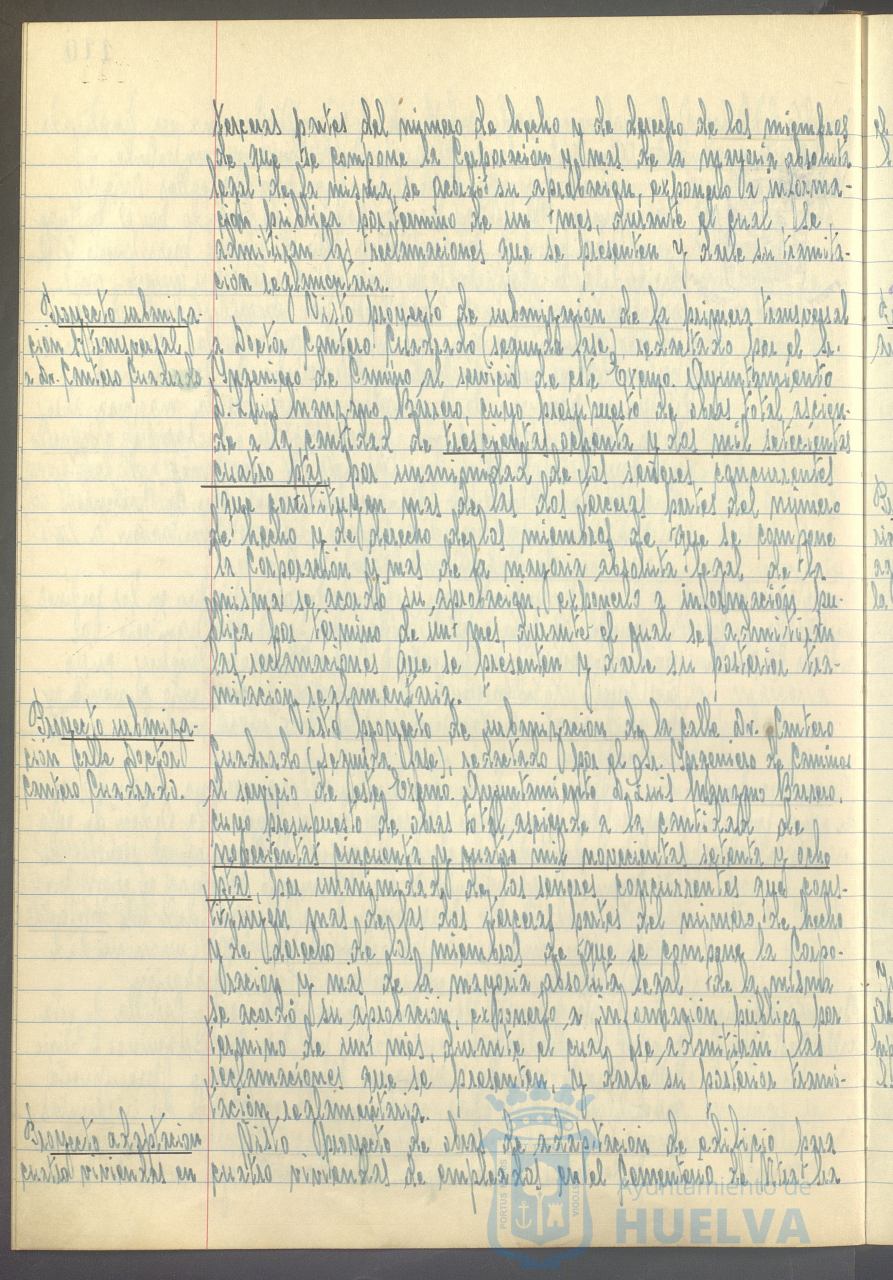 terceras partes del número de hecho y de derecho de los miembros
de que se compone la Corporación y mas de la mayoria absoluta
legal de la misma se acordó su aprobacion, exponerlo a informa-
ción publica por termino de un mes, durante el cual, se
admitiran las reclamaciones que se presenten y darle su tramita-
ción reglamentaria.
Proyecto urbaniza-
ción 1ª transversal
a Dr. Cantero Cuadrado
Visto proyecto de urbanización de la primera transversal
a Doctor Cantero Cuadrado (segunda fase), redactado por el Sr.
Yngeniero de Camino al servicio de este Excmo. Ayuntamiento
D. Luis Manzano Barrero, cuyo presupuesto de obras total ascien-
de a la cantidad de trescientas ochenta y dos mil setecientas
cuatro ptas, por unanimidad de los señores concurrentes
que constituyen mas de las dos terceras partes del número
de hecho y de derecho de los miembros de que se compone
la Corporación y mas de la mayoria absoluta legal de la
misma se acordó su aprobacion, exponerlo a información pu-
blica por termino de un mes, durante el cual se admitirán
las reclamaciones que se presenten y darle su posterior tra-
mitación reglamentaria.
Proyecto urbaniza-
ción calle Doctor
Cantero Cuadrado.
Visto proyecto de urbanizacion de la calle Dr. Cantero
Cuadrado (segunda fase), redactado por el Sr. Yngeniero de Caminos
al servicio de este Excmo. Ayuntamiento D. Luis Manzano Barrero.
cuyo presupuesto de obras total asciende a la cantidad de
novecientas cincuenta y cuatro mil novecientas setenta y ocho
ptas, por unanimidad de los señores concurrentes que cons-
tituyen mas de las dos terceras partes del número de hecho
y de derecho de los miembros de que se compone la Corpo-
ración y mas de la mayoria absoluta legal de la misma
se acordó su aprobación, exponerlo a información, publica por
termino de un mes, durante el cual se admitirán las
reclamaciones que se presenten, y darle su posterior trami-
tación reglamentaria.
Proyecto adaptacion
cuatro viviendas en
Visto proyecto de obras de adaptación de edificio para
cuatro viviendas de empleados en el Cementerio de Ntra Sra
PORTUS
CUSTODIA
Ayuntamiento de
HUELVA